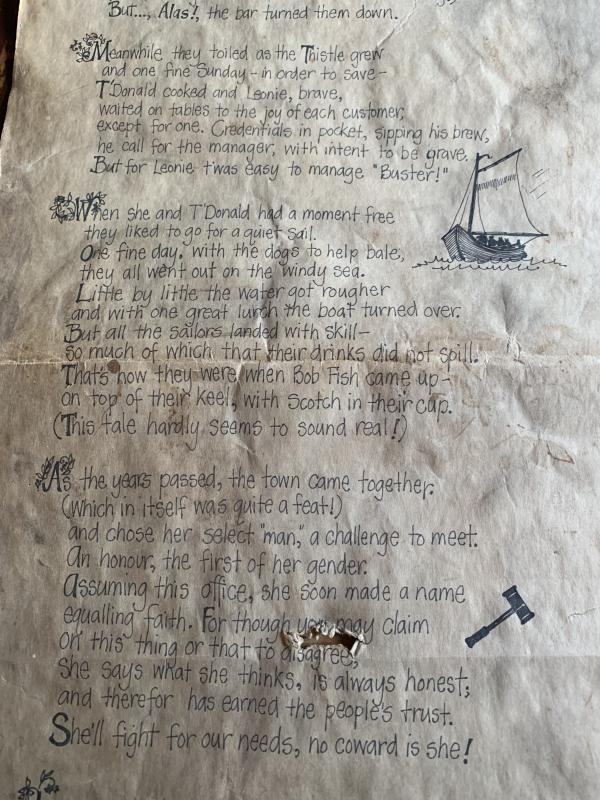 But..., Alas!, the bar turned them down.
Meanwhile they toiled as the Thistle grew
and one fine Sunday - in order to save -
T'Donald cooked and Leonie, brave,
waited on tables to the joy of each customer,
except for one. Credentials in pocket, sipping his brew,
he call for the manager, with intent to be grave.
But for Leonie t'was easy to manage "Buster!"
When she and T'Donald had a moment free
they liked to go for a quiet sail.
One fine day, with the dogs to help bale,
they all went out on the windy sea.
Little by little the water got rougher
and with one great lurch the boat turned over.
But all the sailors landed with skill -
so much of which that their drinks did not spill.
That's how they were when Bob Fish came up -
on top of their keel, with Scotch in their cup.
(This tale hardly seems to sound real!)
As the years passed, the town came together.
(Which in itself was quite a feat!)
and chose her select "man," a challenge to meet.
An honour, the first of her gender.
Assuming this office, she soon made a name
equalling faith. For though you may claim
on this thing or that to disagree,
She says what she thinks, is always honest,
and therefor has earned the people's trust.
She'll fight for our needs, no coward is she!